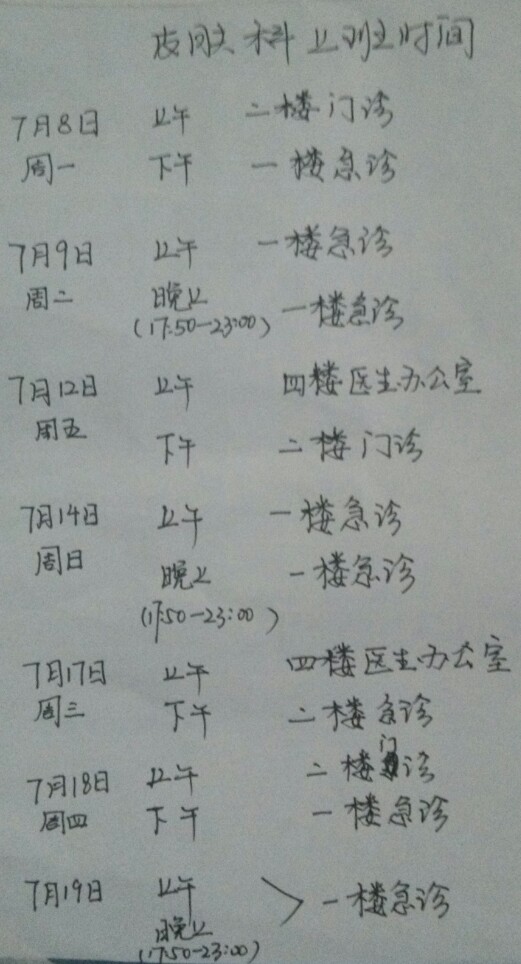 皮肤科上班时间
7月8日 上午 二楼门诊
周一 下午 一楼急诊
7月9日 上午 一楼急诊
周二 晚上 一楼急诊
(17:50-23:00)
7月12日 上午 四楼医生办公室
周五
下午 二楼门诊
7月14日 上午 一楼急诊
周日 晚上 一楼急诊
(17:50-23:00)
7月17日 上午 四楼医生办公室
周三 下午 二楼急诊
7月18日 上午 二楼门诊
周四 下午 一楼急诊
7月19日 上午 一楼急诊
晚上
(17:50-23:00)